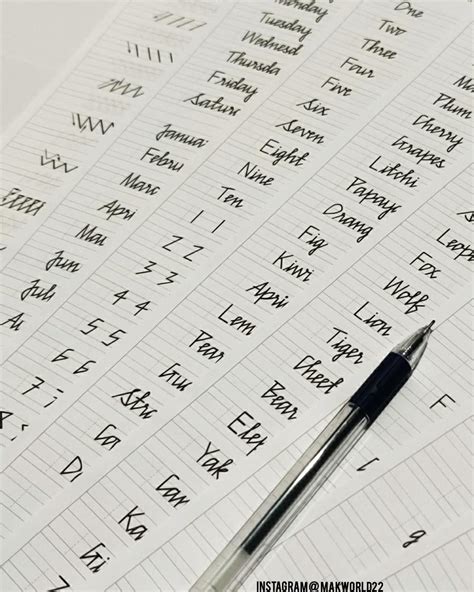 Monday
Tuesday
Wednesd
Thursda
Friday
Satur
Januai
Febru
Marc
Apri
Mai
Jun
Juli
Au
One
Two
Three
Four
Five
Six
Seven
Eight
Nine
Ten
1 1
2 2
3 3
4 4
5 5
6 6
7
Ma
Plum
Cherry
Grapes
Litchi
Papay
Orang
Fig
Kiwi
Apri
Lem
Pear
Gu
Str
Ca
Di
Leop
Fox
Wolf
Lion
Tiger
Cheet
Bear
Elep
Yak
Car
Ka
Gi
F
g
INSTAGRAM@MAKWORLD22